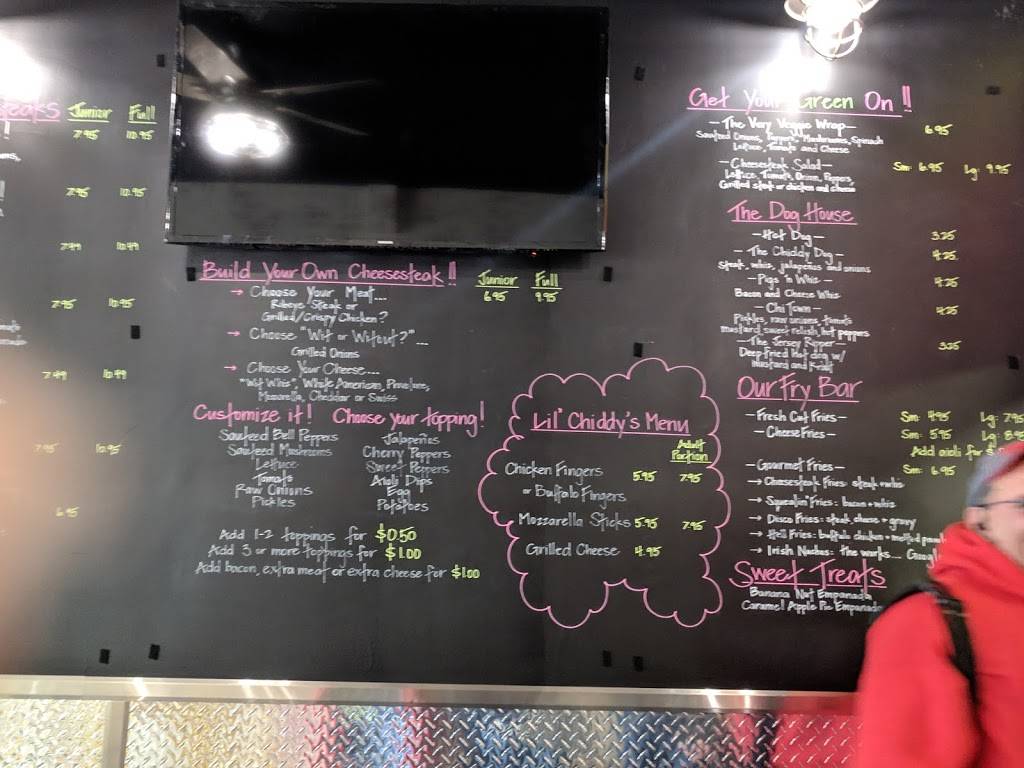 eaks Junior Full
7.95 10.95
7.95 10.95
7.49 10.49
7.95 10.95
7.49 10.49
7.95 10.95
6.95
Build Your Own Cheesesteak!! Junior Full
→ Choose Your Meat... 6.95 9.95
Ribeye Steak or
Grilled/Crispy Chicken?
→ Choose "Wit or Witout?"...
Grilled Onions
→ Choose Your Cheese....
"Wit Whis", White American, Provolone,
Mozzarella, Cheddar or Swiss
Customize it! Choose your topping!
Sauteed Bell Peppers
Sauteed Mushrooms
Lettuce
Tomato
Raw Onions
Pickles
Jalapeños
Cherry Peppers
Sweet Peppers
Aioli Dips
Egg
Potatoes
Add 1-2 toppings for $0.50
Add 3 or more toppings for $1.00
Add bacon, extra meat or extra cheese for $1.00
Lil' Chiddy's Menu
Adult
Portion
Chicken Fingers 5.95 7.95
or Buffalo Fingers
Mozzarella Sticks 5.95 7.95
Grilled Cheese 4.95
Get Your Green On!!
-The Very Veggie Wrap- 6.95
Sauteed Onions, Peppers, Mushrooms, Spinach
Lettuce, Tomato and Cheese
-Cheesesteak Salad- Sm: 6.95 Lg: 9.95
Lettuce, Tomato, Onion, Peppers
Grilled steak or chicken and cheese
The Dog House
-Hot Dog- 3.25
-The Chiddy Dog- 4.25
steak, whiz, jalapeños and onions
-Pigs 'n Whis- 4.25
Bacon and Cheese Whiz
-Chi Town- 4.25
Pickles, raw onions, tomato
mustard, sweet relish, hot peppers
-The Jersey Ripper- 3.25
Deep Fried Hot dog w/
mustard and kraut
Our Fry Bar
-Fresh Cut Fries- Sm: 4.95 Lg: 7.95
-Cheese Fries- Sm: 5.95 Lg: 8.95
Add aioli for $
-Gourmet Fries- Sm: 6.95
→ Cheesesteak Fries: steak + whiz
→ Squealin' Fries: bacon + whiz
→ Disco Fries: steak, cheese + gravy
→ Hell Fries: buffalo chicken +
→ Irish Nachos: the works...
Sweet Treats
Banana Nut Empanada
Caramel Apple Pie Empanada